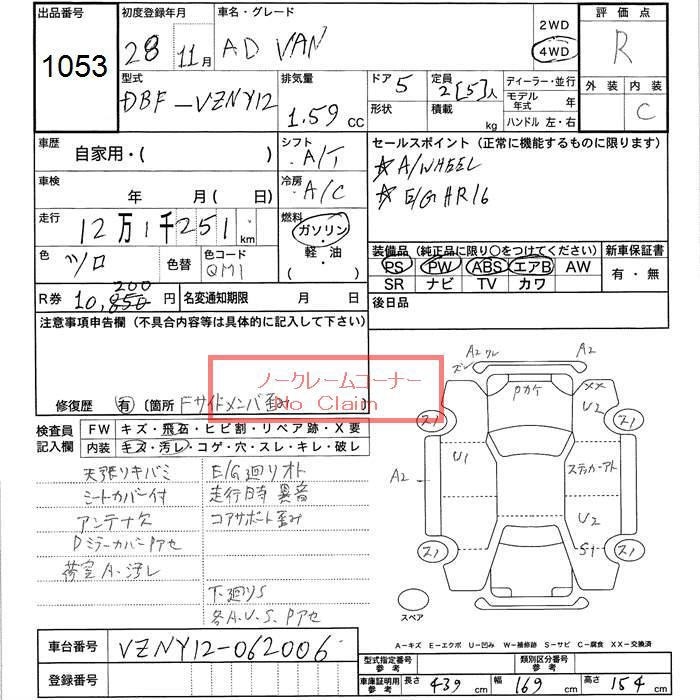 出品番号
1053
初度登録年月
28 11月
車名・グレード
AD VAN
2WD
4WD
評価点
R
外装 内装
C
型式
DBF-VZNY12
排気量
1.59 CC
ドア 5
形状
定員
2[5]人
積載
kg
ディーラー・並行
モデル年式 年
ハンドル 左・右
車歴
自家用・( )
シフト
A/T
セールスポイント (正常に機能するものに限ります)
☆A/WHEEL
☆E/G HR16
車検
年 月( 日)
冷房
A/C
走行
12万1千251 km
燃料
ガソリン
軽・油
( )
色
シロ
色替
色コード
QM1
装備品 (純正品に限り〇をつけてください)
PS PW ABS エアB AW
SR ナビ TV カワ
新車保証書
有・無
R券 10,850 円
200
名変通知期限 月 日
後日品
注意事項申告欄 (不具合内容等は具体的に記入して下さい)
ノークレームコーナー
No Claim
修復歴 有 〔箇所 Fサイドメンバ歪み 〕
検査員記入欄
FW キズ・飛石・ヒビ割・リペア跡・X要
内装 キズ・汚レ・コゲ・穴・スレ・キレ・破レ
天張リキバミ
シートカバー付
アンテナ欠
Dミラーカバーアセ
荷室A・汚レ
E/G廻リオト
走行時異音
コアサポート歪み
下廻りS
各A.U.S.Pアセ
A2
A2
Pカケ
XX
U2
スリ
スリ
U1
A2
ステッカーアト
U2
S1
スリ
スリ
スペア
A-キズ E-エクボ U-凹み W-補修跡 S-サビ C-腐食 XX-交換済
車台番号 VZNY12-062006
登録番号
型式指定番号 参考
類別区分番号 参考
車庫証明用 参考
長さ 439 cm 幅 169 cm 高さ 154 cm